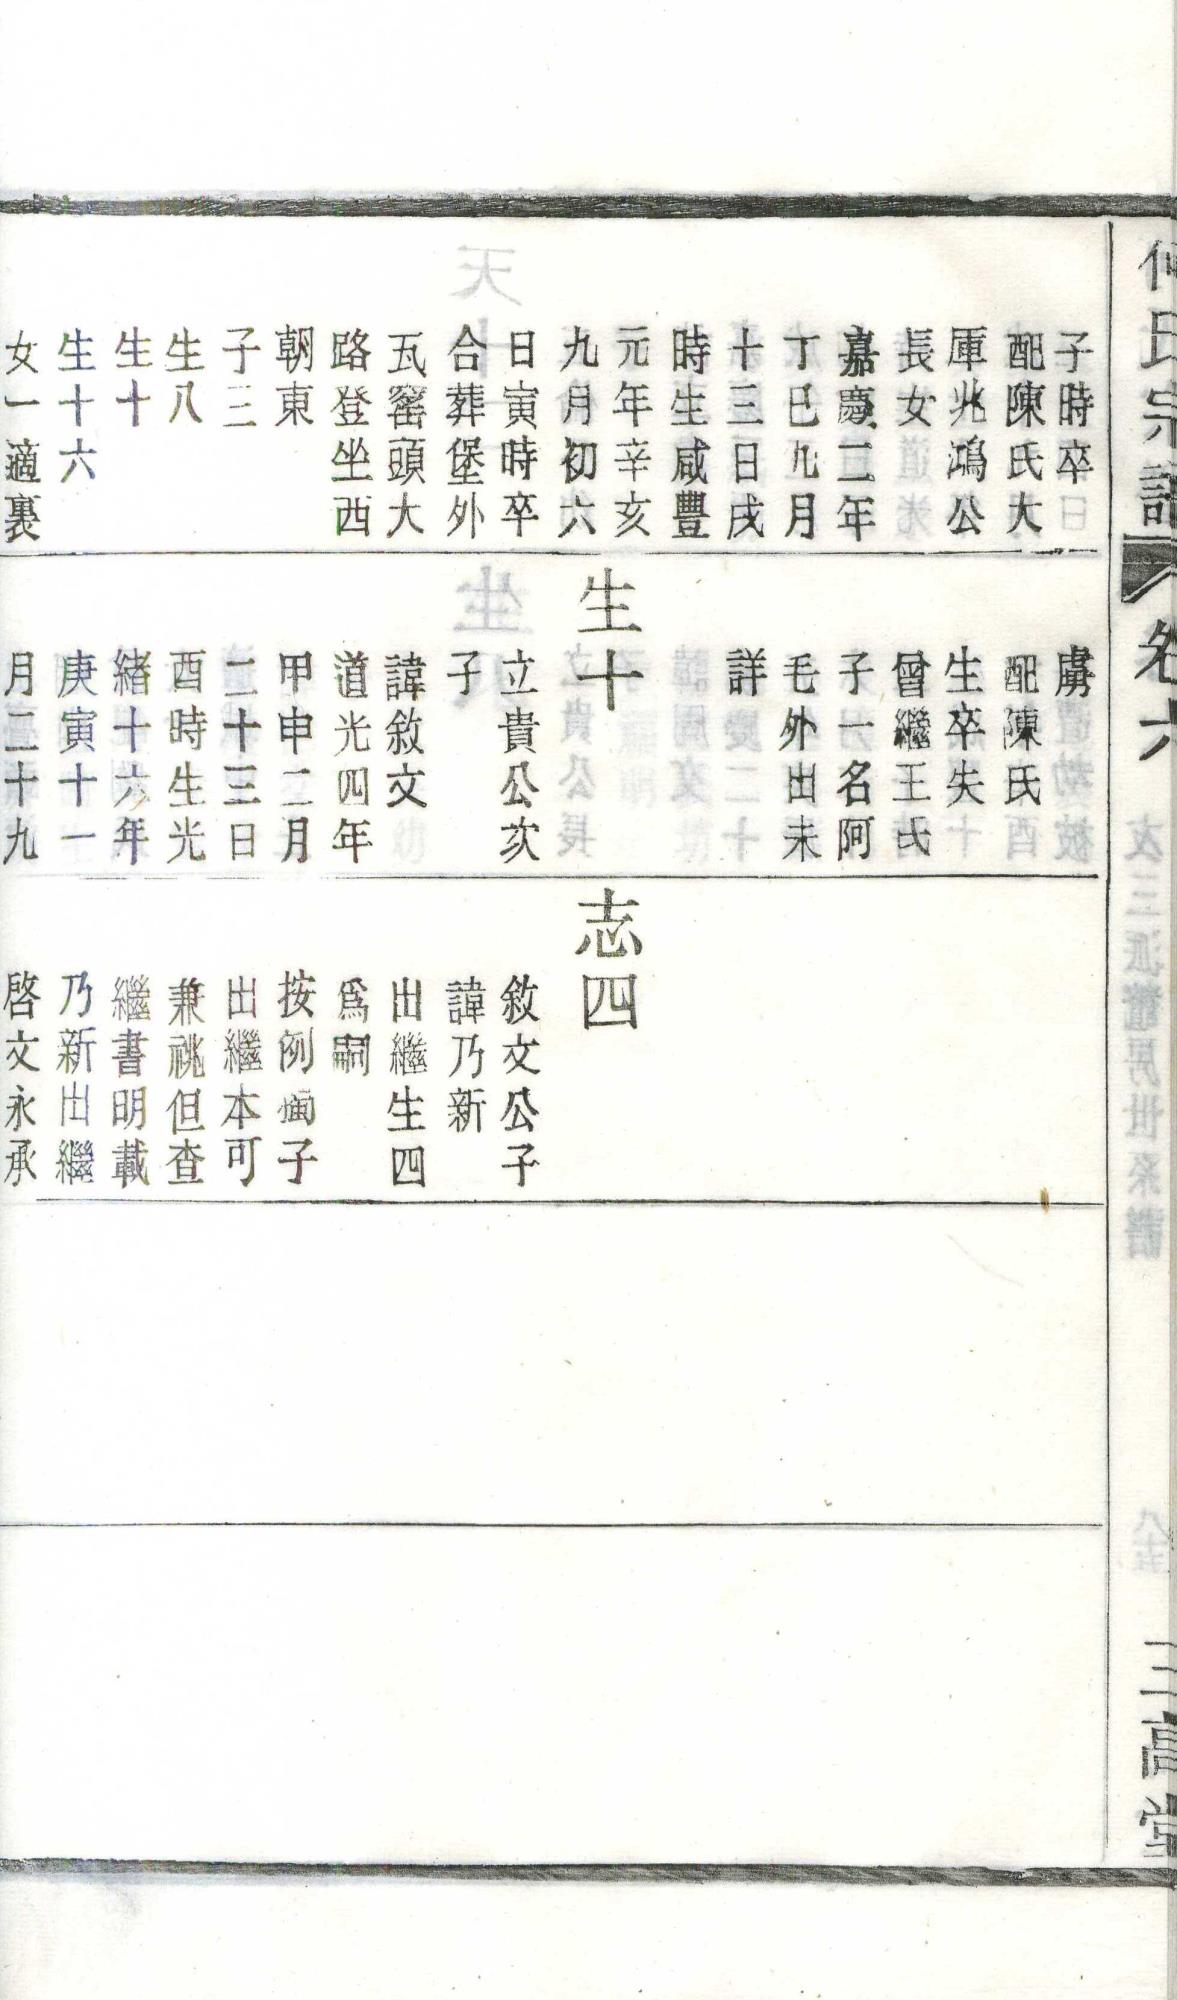 何氏宗譜
卷六
三高堂
子時卒
配陳氏大
厙兆鴻公
長女
嘉慶二年
丁巳九月
十三日戌
時生咸豐
元年辛亥
九月初六
日寅時卒
合葬堡外
瓦窰頭大
路登坐西
朝東
子三
生八
生十
生十六
女一適裏
虜
配陳氏
生卒失
曾繼王氏
子一名阿
毛外出未
詳
生十
立貴公次
子
諱敘文
道光四年
甲申二月
二十三日
酉時生光
緒十六年
庚寅十一
月二十九
志四
敘文公子
諱乃新
出繼生四
爲嗣
按例獨子
出繼本可
兼祧但查
繼書明載
乃新出繼
啓文永承